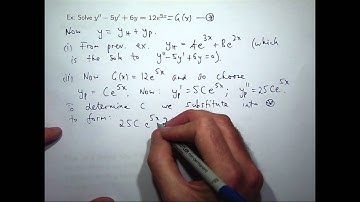 Ex: Solve y'' − 5y' + 6y = 12e^{5x} = G(x) — ⊛
Now y = y_H + y_P.
(i) From prev. ex. y_H = Ae^{3x} + Be^{2x} (which
is the soln to y'' − 5y' + 6y = 0).
(ii) Now G(x) = 12e^{5x} and so choose
y_P = Ce^{5x}. Now: y_P' = 5Ce^{5x}; y_P'' = 25Ce^{5x}.
To determine C we substitute into ⊛
to form: 25C e^{5x}